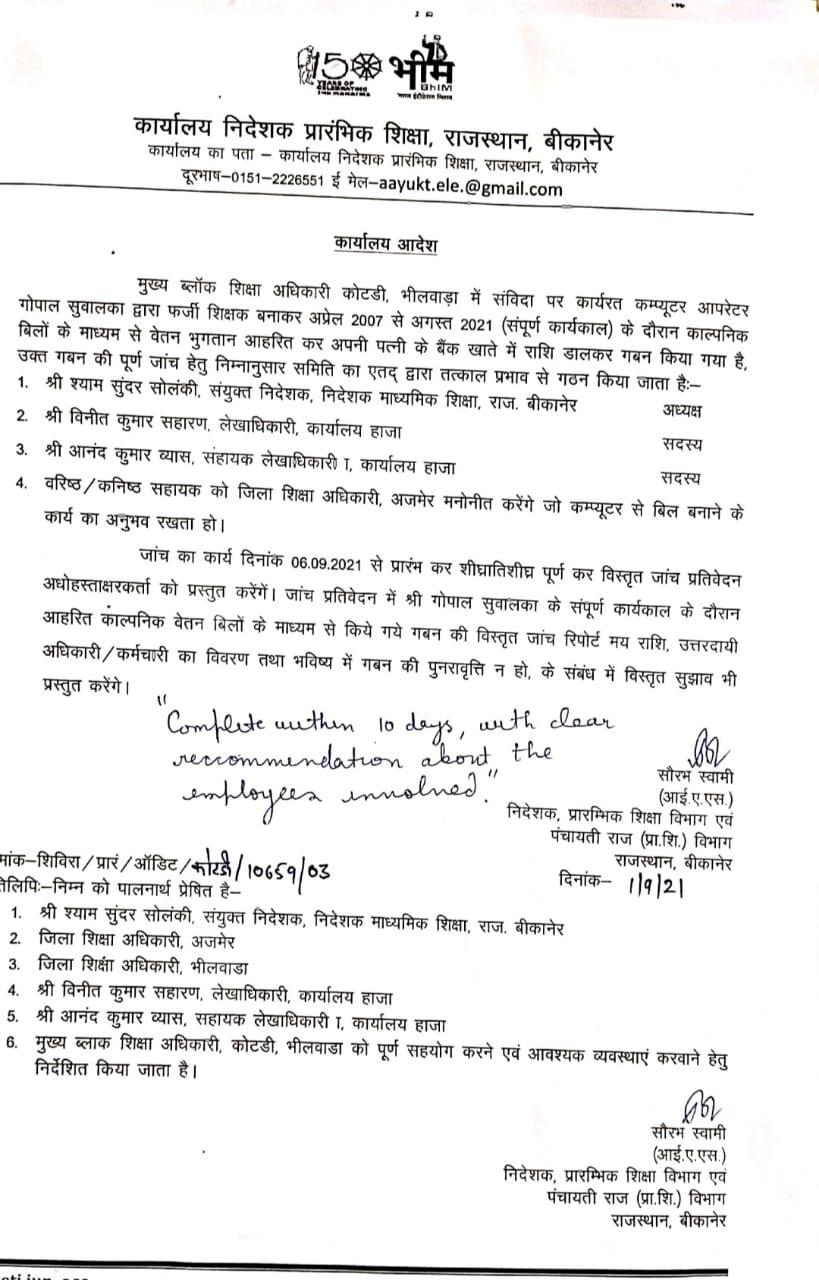 150
YEARS OF
CELEBRATING
THE MAHATMA
भीम
BhIM
कार्यालय निदेशक प्रारंभिक शिक्षा, राजस्थान, बीकानेर
कार्यालय का पता – कार्यालय निदेशक प्रारंभिक शिक्षा, राजस्थान, बीकानेर
दूरभाष–0151–2226551 ई मेल–aayukt.ele.@gmail.com
कार्यालय आदेश
मुख्य ब्लॉक शिक्षा अधिकारी कोटडी, भीलवाड़ा में संविदा पर कार्यरत कम्प्यूटर आपरेटर
गोपाल सुवालका द्वारा फर्जी शिक्षक बनाकर अप्रेल 2007 से अगस्त 2021 (संपूर्ण कार्यकाल) के दौरान काल्पनिक
बिलों के माध्यम से वेतन भुगतान आहरित कर अपनी पत्नी के बैंक खाते में राशि डालकर गबन किया गया है,
उक्त गबन की पूर्ण जांच हेतु निम्नानुसार समिति का एतद् द्वारा तत्काल प्रभाव से गठन किया जाता हैः–
1. श्री श्याम सुंदर सोलंकी, संयुक्त निदेशक, निदेशक माध्यमिक शिक्षा, राज. बीकानेर अध्यक्ष
2. श्री विनीत कुमार सहारण, लेखाधिकारी, कार्यालय हाजा सदस्य
3. श्री आनंद कुमार व्यास, संहायक लेखाधिकारी I, कार्यालय हाजा सदस्य
4. वरिष्ठ/कनिष्ठ सहायक को जिला शिक्षा अधिकारी, अजमेर मनोनीत करेंगे जो कम्प्यूटर से बिल बनाने के
कार्य का अनुभव रखता हो।
जांच का कार्य दिनांक 06.09.2021 से प्रारंभ कर शीघ्रातिशीघ्र पूर्ण कर विस्तृत जांच प्रतिवेदन
अधोहस्ताक्षरकर्ता को प्रस्तुत करेंगें। जांच प्रतिवेदन में श्री गोपाल सुवालका के संपूर्ण कार्यकाल के दौरान
आहरित काल्पनिक वेतन बिलों के माध्यम से किये गये गबन की विस्तृत जांच रिपोर्ट मय राशि, उत्तरदायी
अधिकारी/कर्मचारी का विवरण तथा भविष्य में गबन की पुनरावृत्ति न हो, के संबंध में विस्तृत सुझाव भी
प्रस्तुत करेंगे।
"Complete within 10 days, with clear
reccommendation about the
employees involved."
सौरभ स्वामी
(आई.ए.एस.)
निदेशक, प्रारम्भिक शिक्षा विभाग एवं
पंचायती राज (प्रा.शि.) विभाग
राजस्थान, बीकानेर
मांक–शिविरा/प्रारं/ऑडिट/कोटडी/10659/03 दिनांक– 1/9/21
तिलिपिः–निम्न को पालनार्थ प्रेषित है–
1. श्री श्याम सुंदर सोलंकी, संयुक्त निदेशक, निदेशक माध्यमिक शिक्षा, राज. बीकानेर
2. जिला शिक्षा अधिकारी, अजमेर
3. जिला शिक्षा अधिकारी, भीलवाडा
4. श्री विनीत कुमार सहारण, लेखाधिकारी, कार्यालय हाजा
5. श्री आनंद कुमार व्यास, सहायक लेखाधिकारी I, कार्यालय हाजा
6. मुख्य ब्लाक शिक्षा अधिकारी, कोटडी, भीलवाडा को पूर्ण सहयोग करने एवं आवश्यक व्यवस्थाएं करवाने हेतु
निर्देशित किया जाता है।
सौरभ स्वामी
(आई.ए.एस.)
निदेशक, प्रारम्भिक शिक्षा विभाग एवं
पंचायती राज (प्रा.शि.) विभाग
राजस्थान, बीकानेर